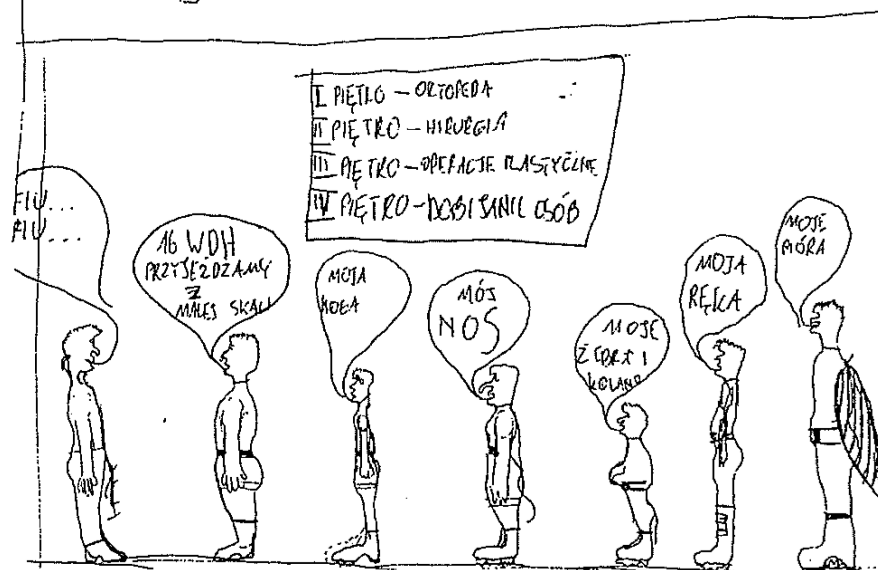 I PIĘTRO - ORTOPEDA
II PIĘTRO - HIRURGIA
III PIĘTRO - OPERACJE PLASTYCZNE
IV PIĘTRO - DOBIJANIE OSÓB
FIU...
FIU...
16 WDH
PRZYJEŻDŻAMY
Z
MAŁEJ SKALI
MOJA
NOGA
MÓJ
NOS
MOJE
ŻEBRA I
KOLANO
MOJA
RĘKA
MOJE
PIÓRA